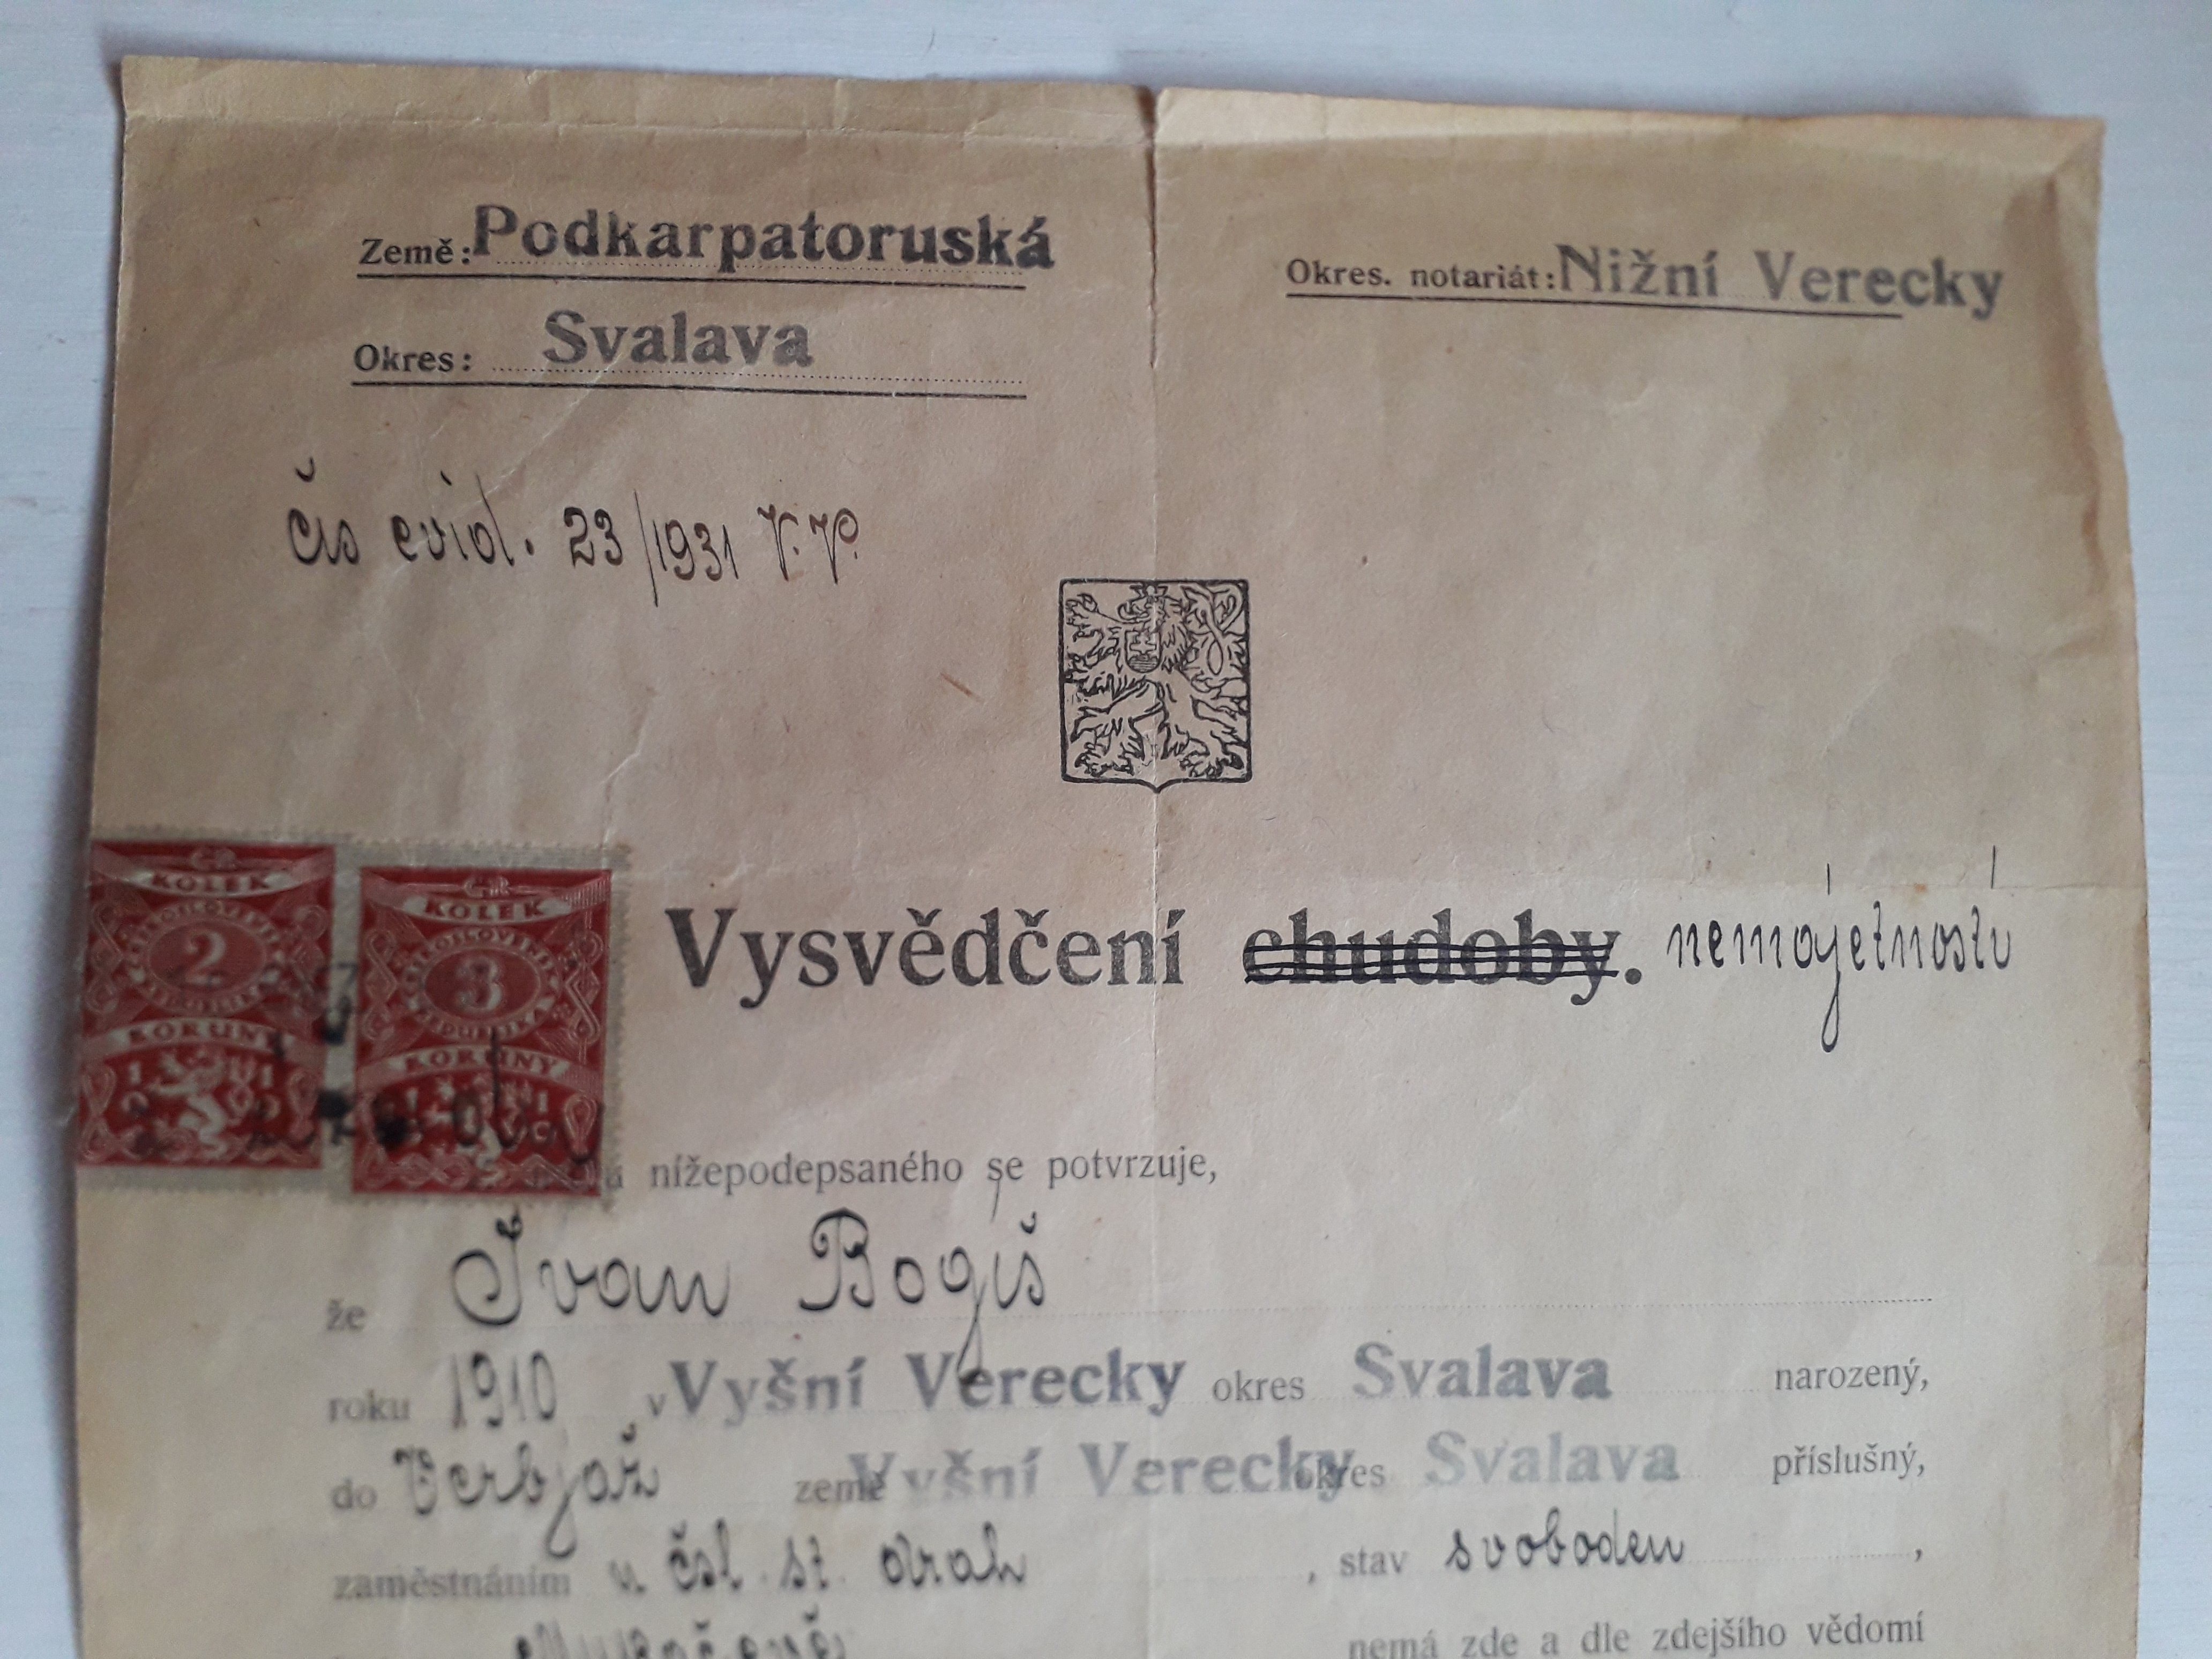 Země: Podkarpatoruská
Okres. notariát: Nižní Verecky
Okres: Svalava
čís evid. 23/1931 V.V.
ČSR
KOLEK
ČESKOSLOVENSKÁ
2
REPUBLIKA
KORUNY
1919
ČSR
KOLEK
ČESKOSLOVENSKÁ
3
REPUBLIKA
KORUNY
1919
Vysvědčení chudoby. nemajetnosti
nížepodepsaného se potvrzuje,
že Ivan Bogiš
roku 1910 v Vyšní Verecky okres Svalava narozený,
do Verbjaž země Vyšní Verecky okres Svalava příslušný,
zaměstnáním u čsl. st. drah , stav svoboden ,
nemá zde a dle zdejšího vědomí